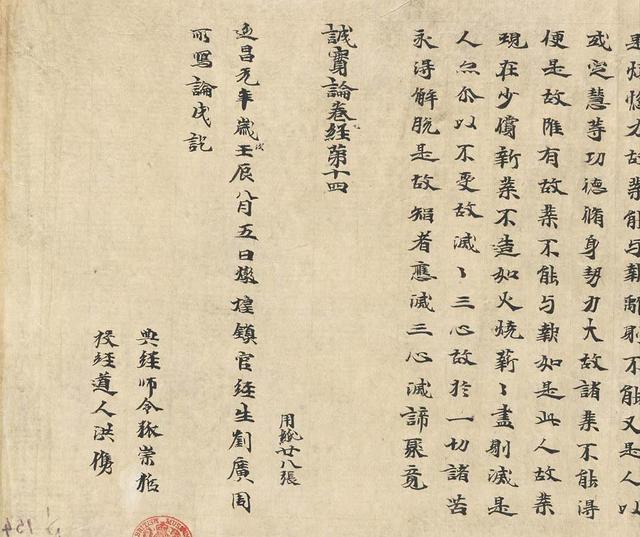 果煩惱力故業能与報離則不能又是人以
或定慧等功德脩身勢力大故諸業不能得
便是故雖有故業不能与報如是此人故業
現在少償新業不造如火燒薪〻盡則滅是
人亦尒以不受故滅〻三心故於一切諸苦
永得解脫是故智者應滅三心滅諦聚竟
誠實論卷經第十四
用紙廿八張
延昌元年歲次壬辰八月五日燉煌鎮官經生劉廣周
所寫論成訖
典經師令狐崇哲
校經道人洪儁